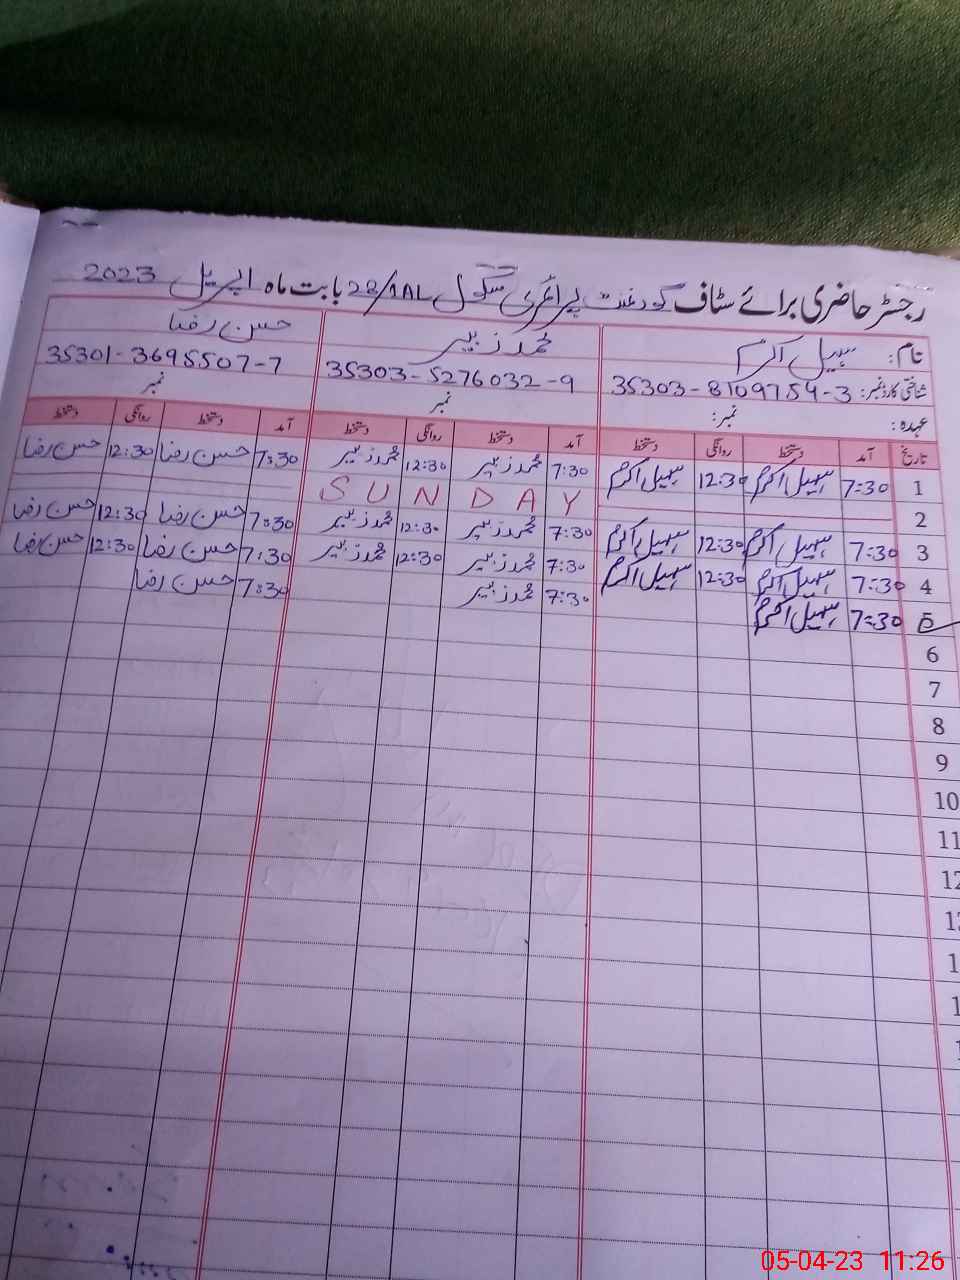 رجسٹر حاضری برائے سٹاف گورنمنٹ پرائمری سکول 28/1AL بابت ماہ اپریل 2023
نام: سہیل اکرم محمد زبیر حسن رضا
شناختی کارڈ نمبر: 35303-8109754-3 35303-5276032-9 35301-3695507-7
عہدہ: نمبر: نمبر نمبر
تاریخ آمد دستخط روانگی دستخط آمد دستخط روانگی دستخط آمد دستخط روانگی دستخط
1 7:30 سہیل اکرم 12:30 سہیل اکرم 7:30 محمد زبیر 12:30 محمد زبیر 7:30 حسن رضا 12:30 حسن رضا
2 SUNDAY
3 7:30 سہیل اکرم 12:30 سہیل اکرم 7:30 محمد زبیر 12:30 محمد زبیر 7:30 حسن رضا 12:30 حسن رضا
4 7:30 سہیل اکرم 12:30 سہیل اکرم 7:30 محمد زبیر 12:30 محمد زبیر 7:30 حسن رضا 12:30 حسن رضا
5 7:30 سہیل اکرم 7:30 محمد زبیر 7:30 حسن رضا
6
7
8
9
10
11
12
05-04-23 11:26